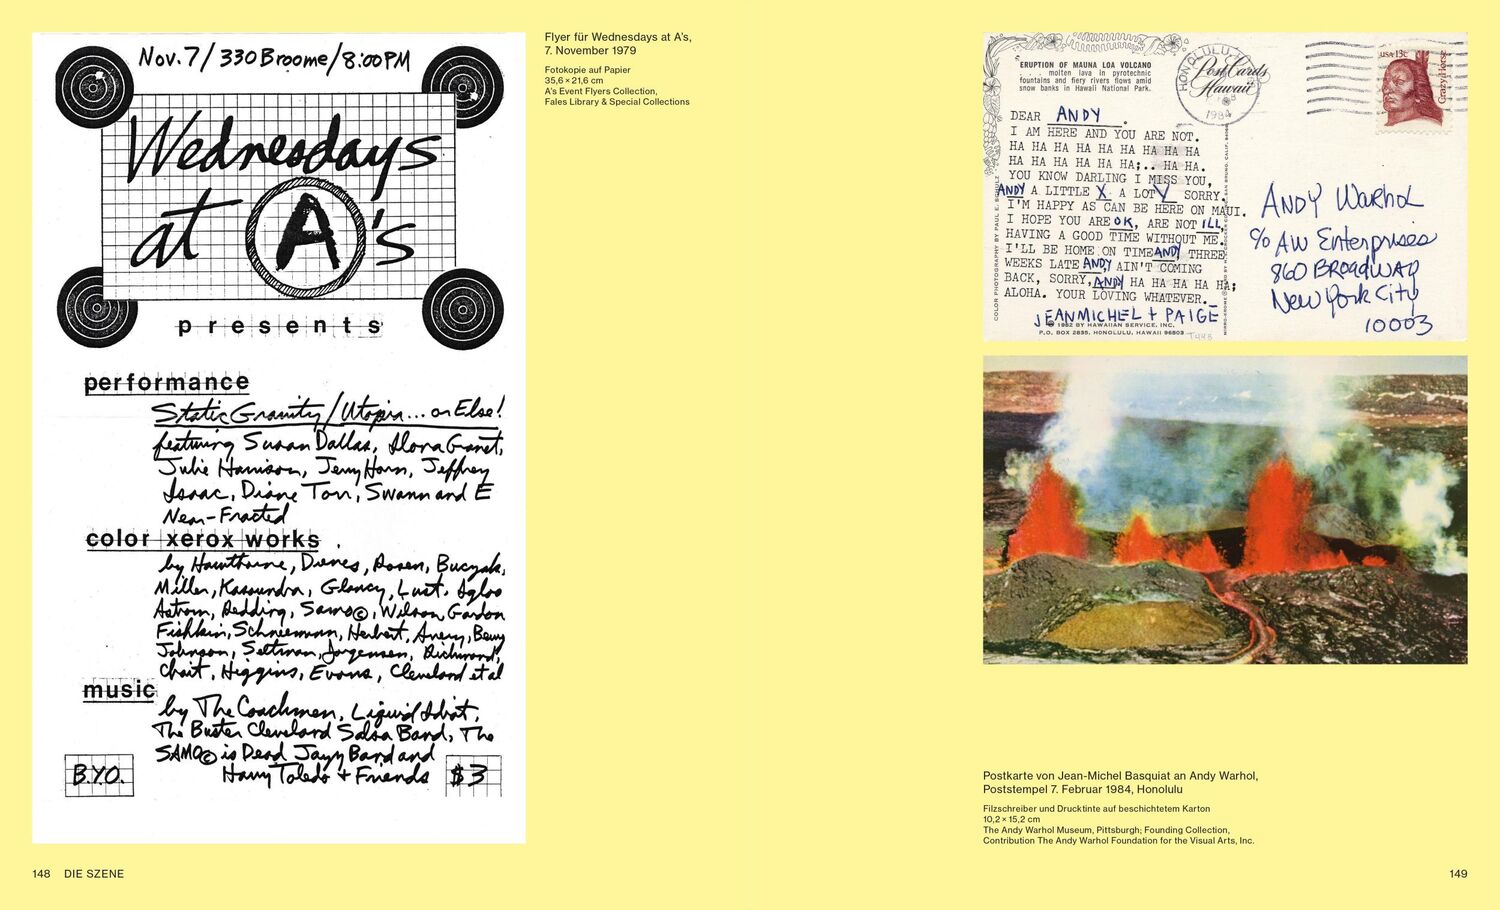 Nov. 7 / 330 Broome / 8:00 PM
Wednesdays
at A's
presents
performance
Static Gravity / Utopia... or Else!
featuring Susan Dallas, Ilona Granet,
Julie Harrison, Jerry Horn, Jeffrey
Isaac, Diane Torr, Swann and E
Nen-Fracted
color xerox works
by Hawthorne, Dienes, Rosen, Buczak,
Miller, Kasoundra, Glancy, Lust, Igloo
Astrom, Redding, Samo©, Wilson, Gordon
Fishkin, Schneeman, Herbert, Avery, Berry
Johnson, Seltman, Jorgensen, Richmond,
Chait, Higgins, Evans, Cleveland et al
music
by The Coachmen, Liquid Idiot,
The Buster Cleveland Salsa Band, The
SAMO© is Dead Jazz Band and
Harry Toledo + Friends
B.Y.O.
$3
Flyer für Wednesdays at A's,
7. November 1979
Fotokopie auf Papier
35,6 × 21,6 cm
A's Event Flyers Collection,
Fales Library & Special Collections
148 DIE SZENE
ERUPTION OF MAUNA LOA VOLCANO
. . . . molten lava in pyrotechnic
fountains and fiery rivers flows amid
snow banks in Hawaii National Park.
HONOLULU
1984
Post Cards
Hawaii
USA 13c
Crazy Horse
DEAR ANDY.
I AM HERE AND YOU ARE NOT.
HA HA HA HA HA HA HA HA HA
HA HA HA HA HA HA;.. HA HA.
YOU KNOW DARLING I MISS YOU,
ANDY A LITTLE X A LOT V SORRY.
I'M HAPPY AS CAN BE HERE ON MAUI.
I HOPE YOU ARE OK, ARE NOT ILL,
HAVING A GOOD TIME WITHOUT ME.
I'LL BE HOME ON TIME ANDY THREE
WEEKS LATE ANDY, AIN'T COMING
BACK, SORRY, ANDY HA HA HA HA HA;
ALOHA. YOUR LOVING WHATEVER.
JEANMICHEL + PAIGE
© 1982 BY HAWAIIAN SERVICE, INC.
P.O. BOX 2835, HONOLULU, HAWAII 96803
T443
COLOR PHOTOGRAPHY BY PAUL E. SCHULZ
ANDY WARHOL
c/o AW Enterprises
860 BROADWAY
New York City
10003
Postkarte von Jean-Michel Basquiat an Andy Warhol,
Poststempel 7. Februar 1984, Honolulu
Filzschreiber und Drucktinte auf beschichtetem Karton
10,2 × 15,2 cm
The Andy Warhol Museum, Pittsburgh; Founding Collection,
Contribution The Andy Warhol Foundation for the Visual Arts, Inc.
149